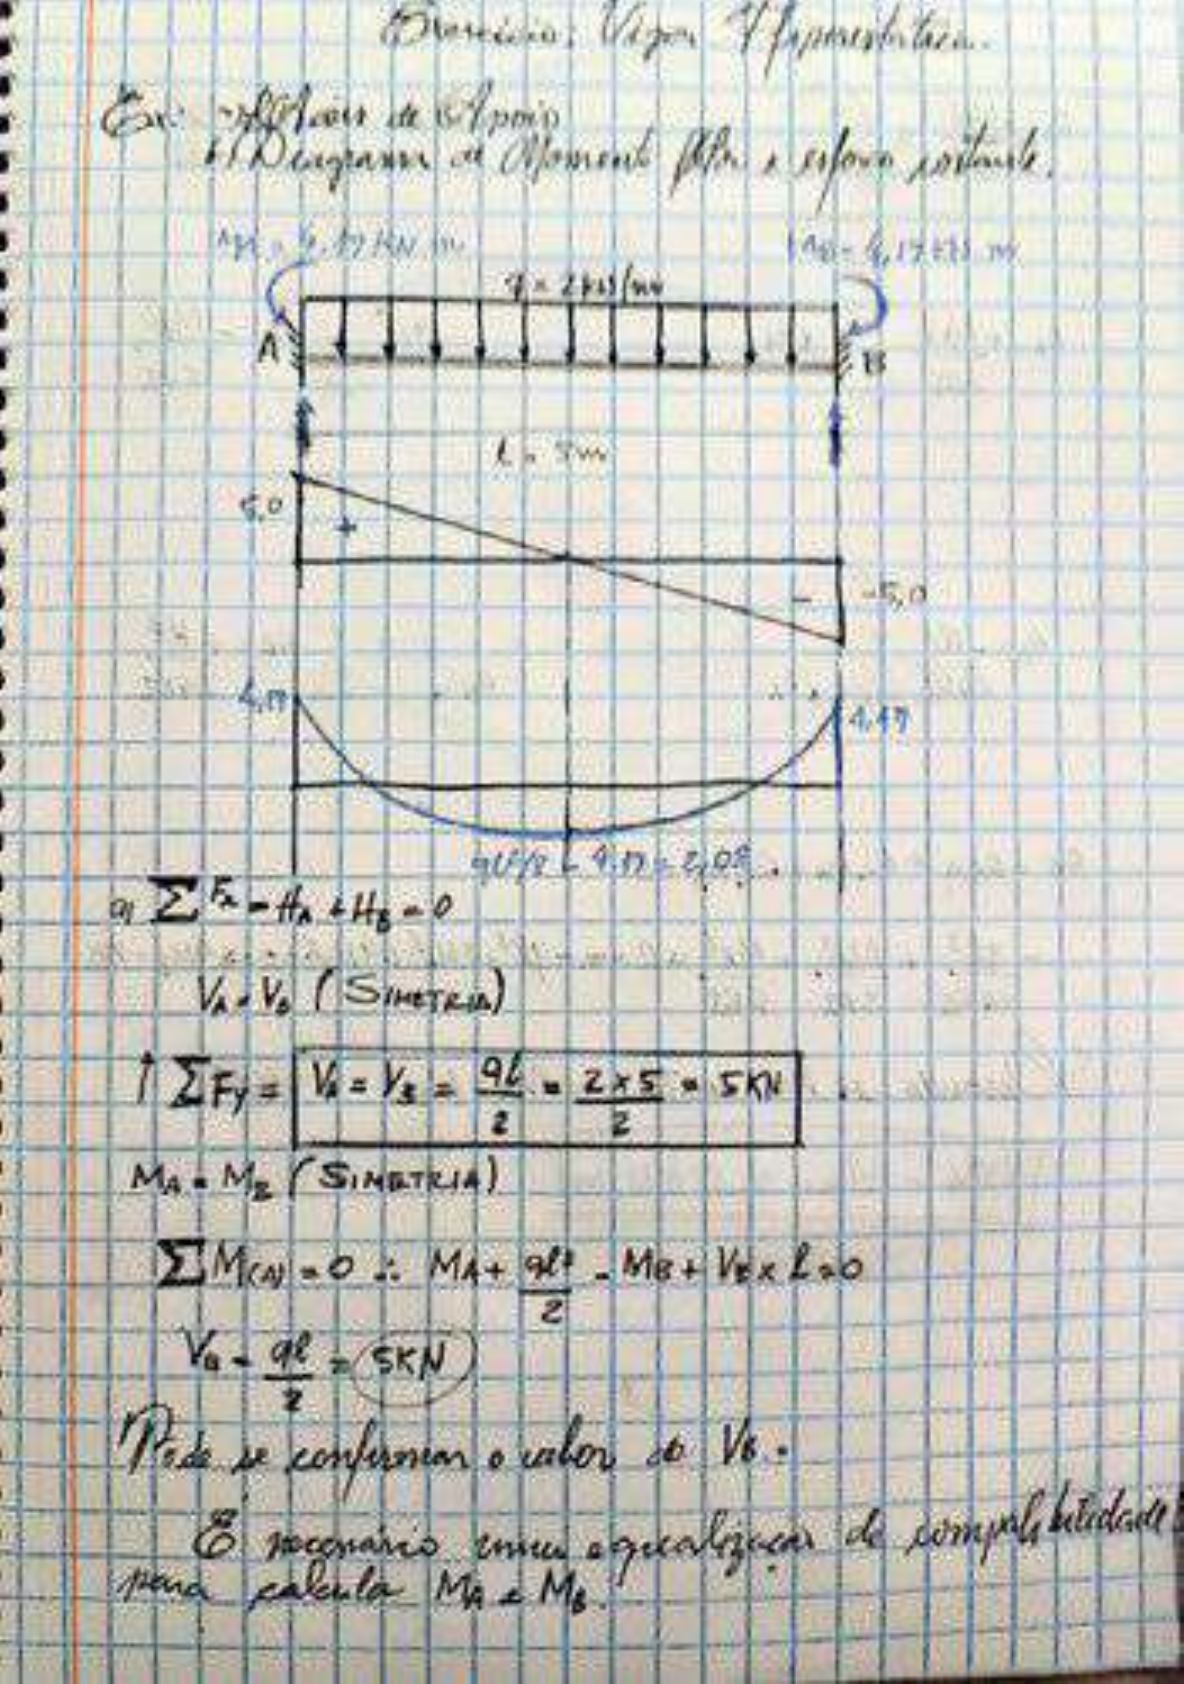 Exercício: Viga Hiperestática.
Ex: de Apoio
b) Diagrama de Momento e esforço cortante.
MA = 4,17 KN m
MB = 4,17 KN m
q = 2 KN/m
A
B
L = 5m
5,0
+
-
-5,0
4,17
4,17
qL²/8 - 4,17 = 2,08
a) ΣFx = HA + HB = 0
VA = VB (SIMETRIA)
↑ ΣFy = VA = VB = qL/2 = 2x5/2 = 5KN
MA = MB (SIMETRIA)
ΣM(A) = 0 ∴ MA + qL²/2 - MB + VB x L = 0
VB = qL/2 = 5KN
Pode se confirmar o valor de VB.
É necessário uma equalização de compatibilidade
para calcula MA e MB.